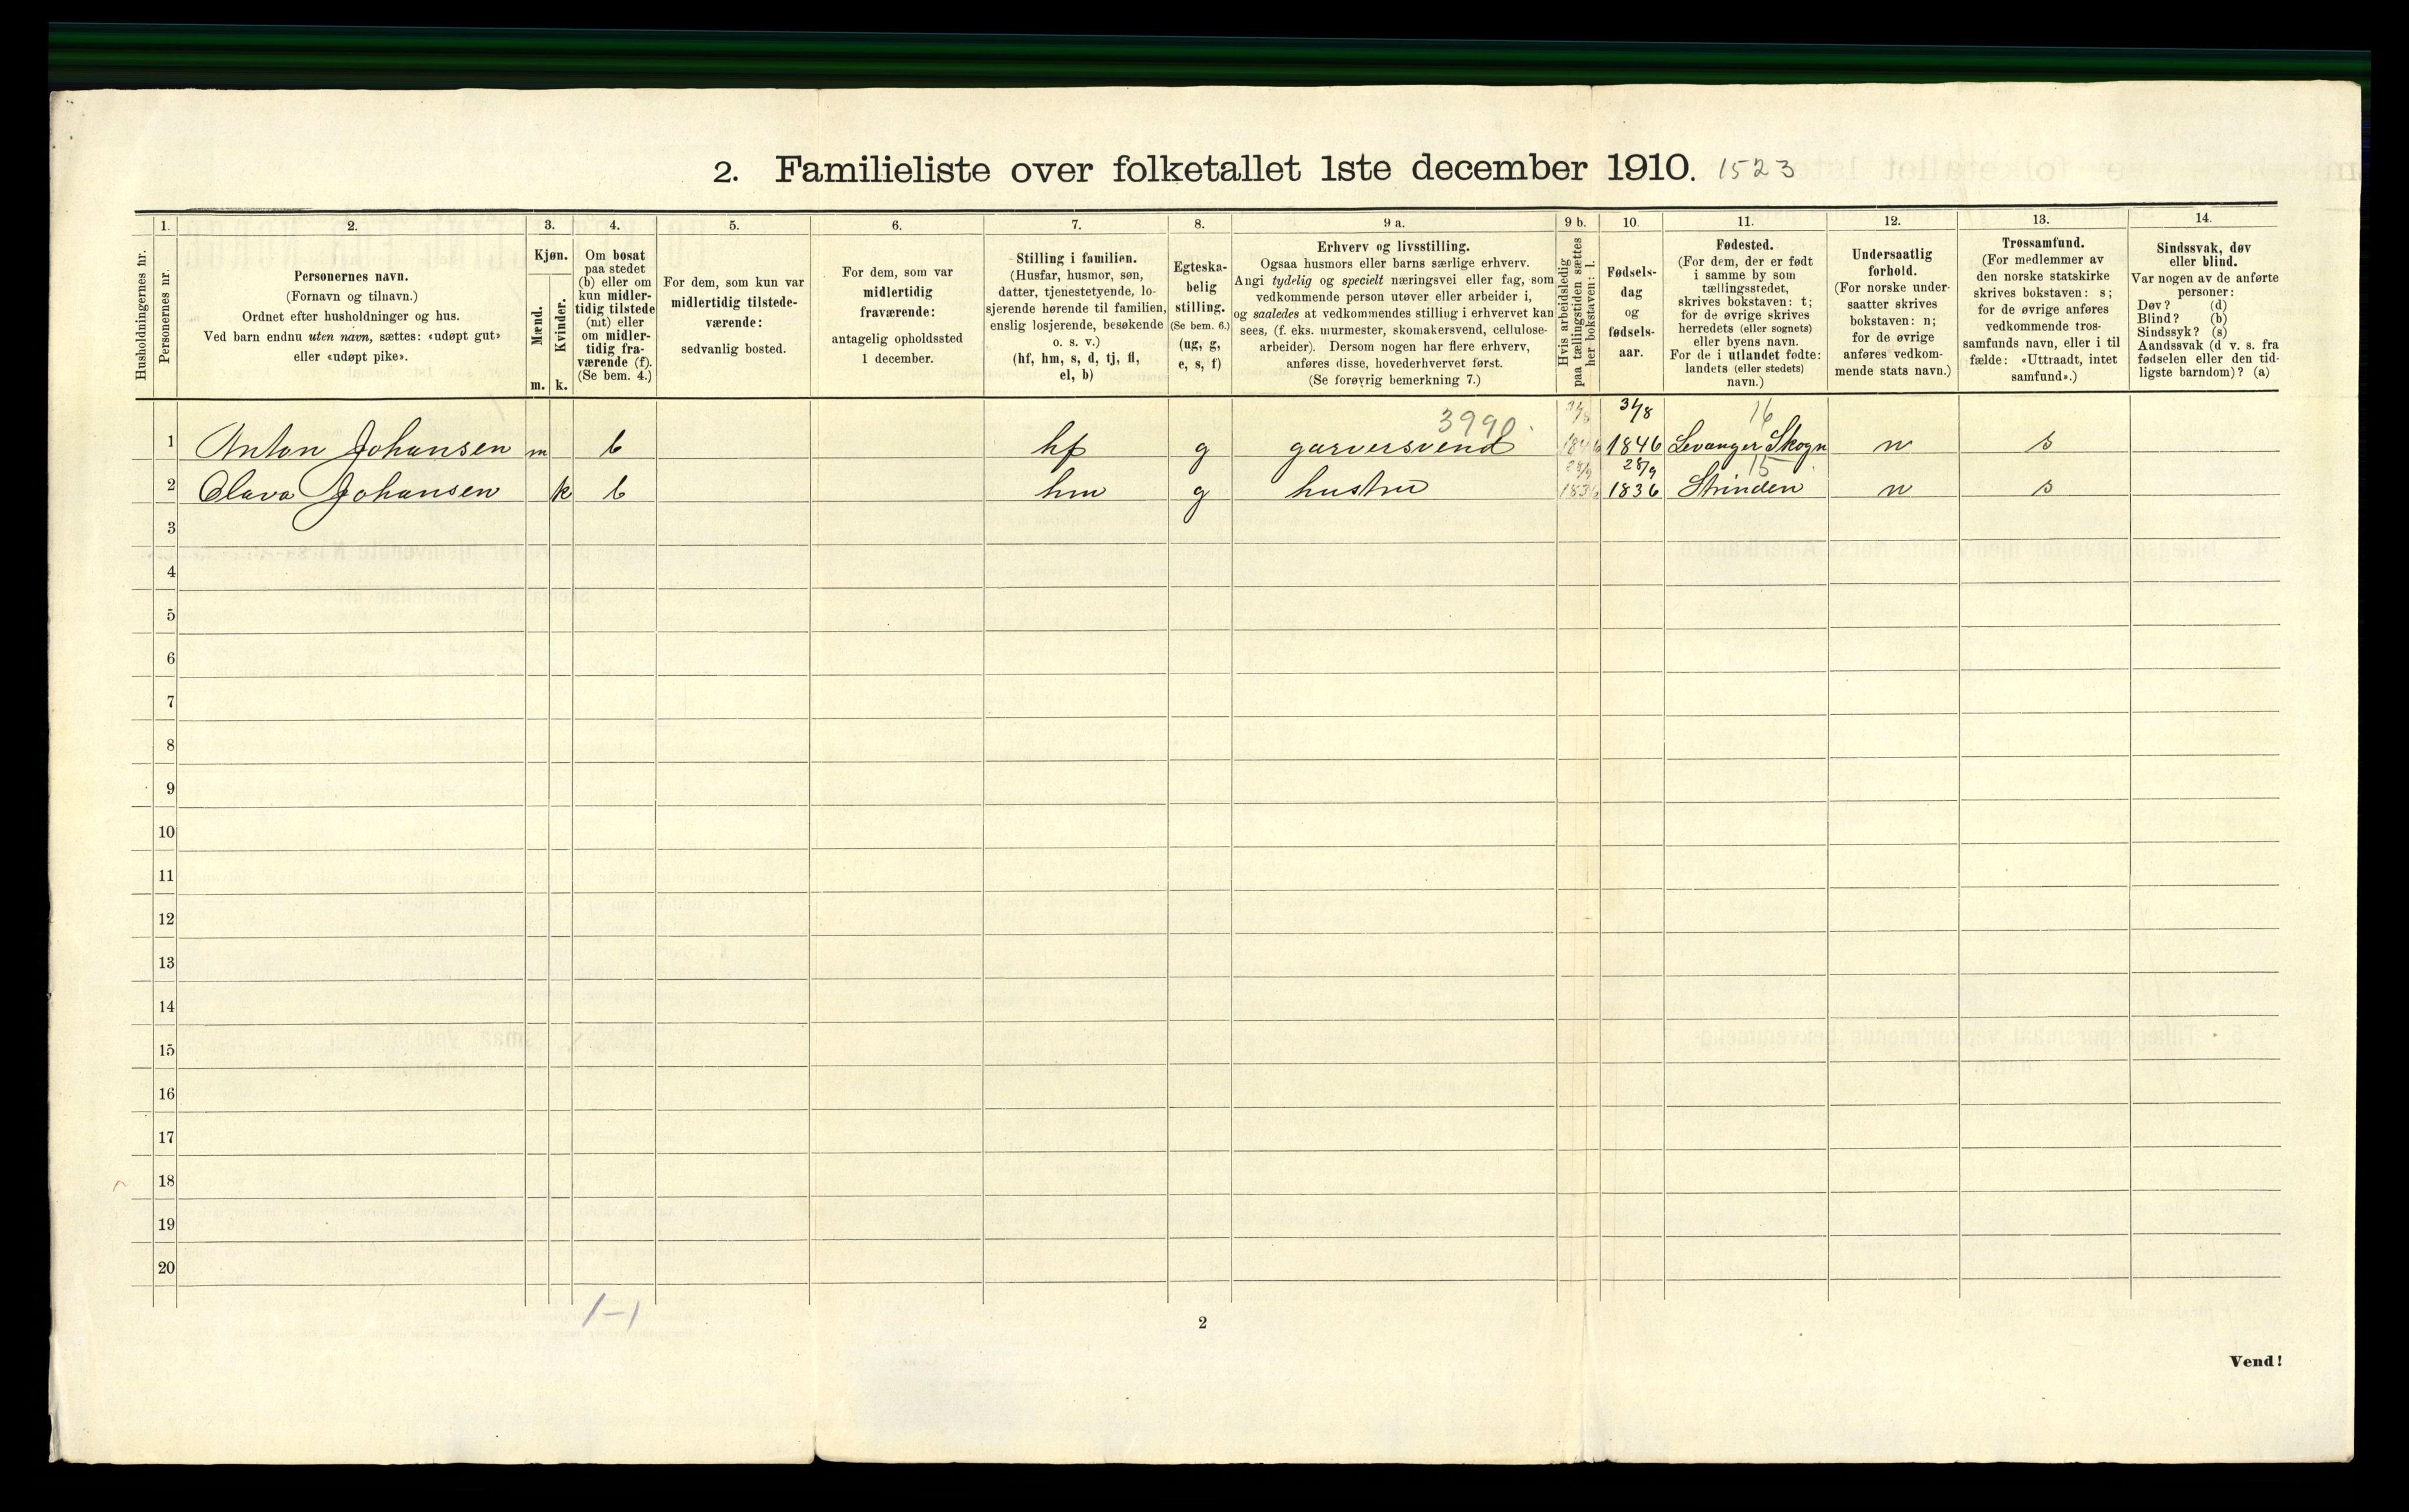 2. Familieliste over folketallet 1ste december 1910. 1523
Husholdningernes nr.
1.
Personernes nr.
2.
Personernes navn.
(Fornavn og tilnavn.)
Ordnet efter husholdninger og hus.
Ved barn endnu uten navn, sættes: «udøpt gut»
eller «udøpt pike».
3.
Kjøn.
Mænd.
m.
Kvinder.
k.
4.
Om bosat
paa stedet
(b) eller om
kun midler-
tidig tilstede
(mt) eller
om midler-
tidig fra-
værende (f).
(Se bem. 4.)
5.
For dem, som kun var
midlertidig tilstede-
værende:
sedvanlig bosted.
6.
For dem, som var
midlertidig
fraværende:
antagelig opholdssted
1 december.
7.
Stilling i familien.
(Husfar, husmor, søn,
datter, tjenestetyende, lo-
sjerende hørende til familien,
enslig losjerende, besøkende
o. s. v.)
(hf, hm, s, d, tj, fl,
el, b)
8.
Egteska-
belig
stilling.
(Se bem. 6.)
(ug, g,
e, s, f)
9 a.
Erhverv og livsstilling.
Ogsaa husmors eller barns særlige erhverv.
Angi tydelig og specielt næringsvei eller fag, som
vedkommende person utøver eller arbeider i,
og saaledes at vedkommendes stilling i erhvervet kan
sees, (f. eks. murmester, skomakersvend, cellulose-
arbeider). Dersom nogen har flere erhverv,
anføres disse, hovederhvervet først.
(Se forøvrig bemerkning 7.)
9 b.
Hvis arbeidsledig
paa tællingstiden sættes
her bokstaven: l.
10.
Fødsels-
dag
og
fødsels-
aar.
11.
Fødested.
(For dem, der er født
i samme by som
tællingsstedet,
skrives bokstaven: t;
for de øvrige skrives
herredets (eller sognets)
eller byens navn.
For de i utlandet fødte:
landets (eller stedets)
navn.)
12.
Undersaatlig
forhold.
(For norske under-
saatter skrives
bokstaven: n;
for de øvrige
anføres vedkom-
mende stats navn.)
13.
Trossamfund.
(For medlemmer av
den norske statskirke
skrives bokstaven: s;
for de øvrige anføres
vedkommende tros-
samfunds navn, eller i til
fælde: «Uttraadt, intet
samfund».)
14.
Sindssvak, døv
eller blind.
Var nogen av de anførte
personer:
Døv? (d)
Blind? (b)
Sindssyk? (s)
Aandssvak (d v. s. fra
fødselen eller den tid-
ligste barndom)? (a)
3990 31/8 31/8 16
1 Anton Johansen m b hf g garversvend 1846 1846 Levanger Skogn n s
28/9 28/9 15
2 Olava Johansen k b hm g hustru 1836 1836 Strinden n s
3
4
5
6
7
8
9
10
11
12
13
14
15
16
17
18
19
20
1–1
2
Vend!